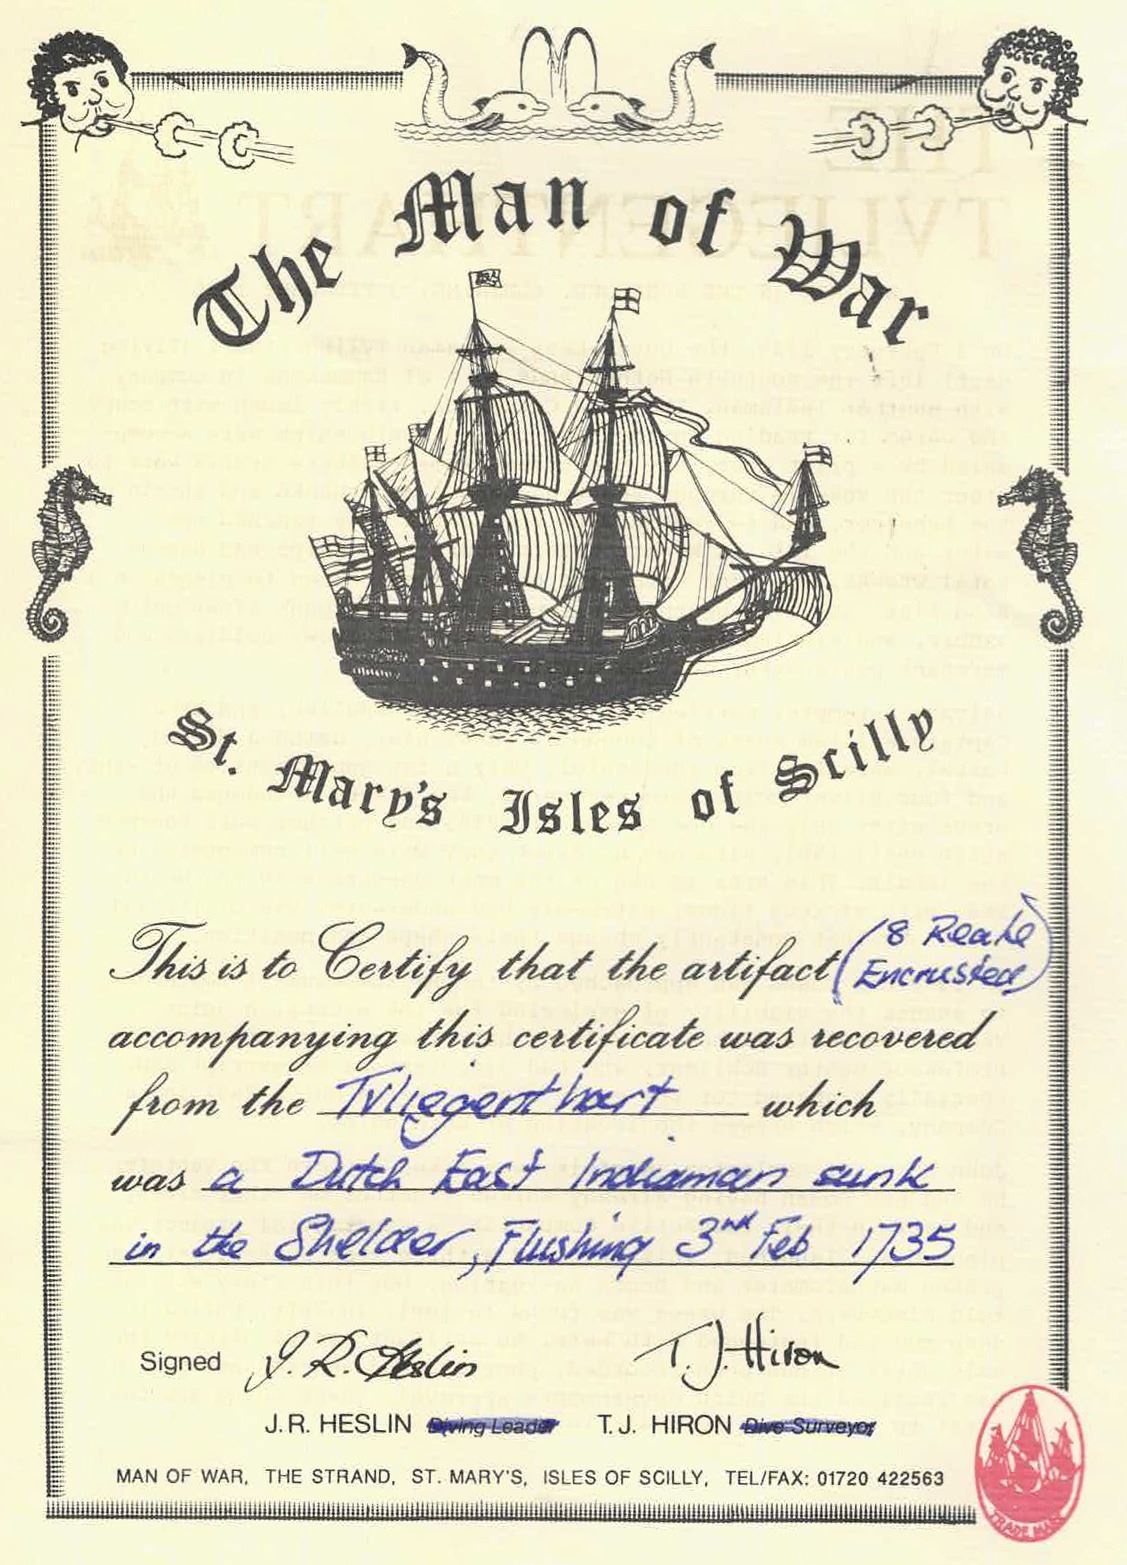 The Man of War
St. Mary's Isles of Scilly
This is to Certify that the artifact (8 Reale
Encrusted)
accompanying this certificate was recovered
from the Tvliegenthart which
was a Dutch East Indiaman sunk
in the Sheldaer, Flushing 3rd Feb 1735
Signed J.R. Heslin T. J. Hiron
J.R. HESLIN Diving Leader T.J. HIRON Dive Surveyor
MAN OF WAR, THE STRAND, ST. MARY'S, ISLES OF SCILLY, TEL/FAX: 01720 422563
TRADE MARK